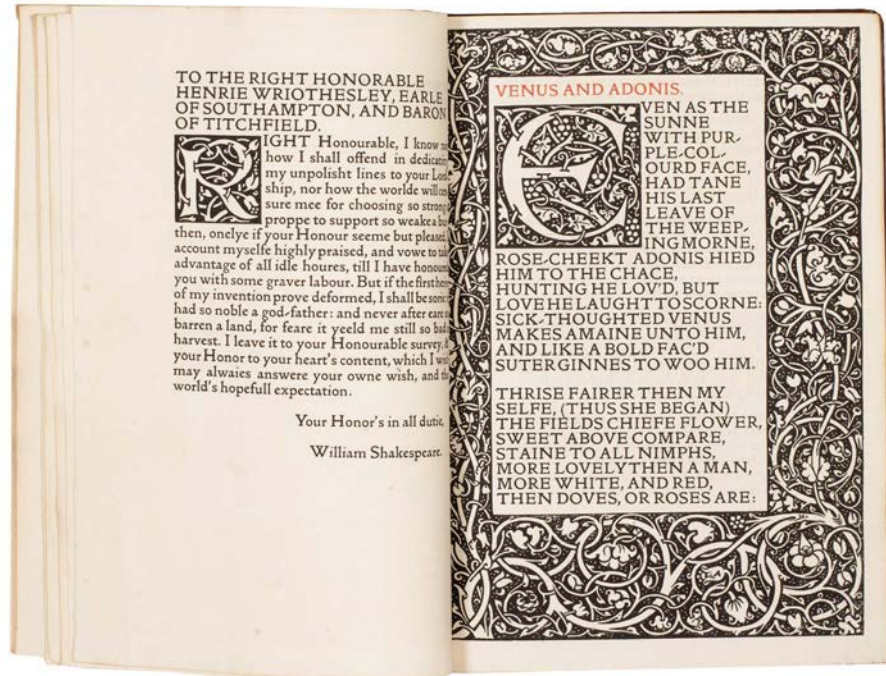 TO THE RIGHT HONORABLE
HENRIE WRIOTHESLEY, EARLE
OF SOUTHAMPTON, AND BARON
OF TITCHFIELD.
RIGHT Honourable, I know
how I shall offend in
my unpolisht lines to your
ship, nor how the worlde will
sure mee for choosing so strong
proppe to support so weake a
then, onelye if your Honour seeme but pleased,
account myselfe highly praised, and vowe to
advantage of all idle houres, till I have
you with some graver labour. But if the first
of my invention prove deformed, I shall be
had so noble a god-father: and never after eare
barren a land, for feare it yeeld me still so bad
harvest. I leave it to your Honourable survey,
your Honor to your heart's content, which I
may alwaies answere your owne wish, and
world's hopefull expectation.
Your Honor's in all dutie,
William Shakespeare.
VENUS AND ADONIS.
EVEN AS THE
SUNNE
WITH PUR-
PLE-COL-
OURD FACE,
HAD TANE
HIS LAST
LEAVE OF
THE WEEP-
ING MORNE,
ROSE-CHEEKT ADONIS HIED
HIM TO THE CHACE,
HUNTING HE LOV'D, BUT
LOVE HE LAUGHT TO SCORNE:
SICK-THOUGHTED VENUS
MAKES AMAINE UNTO HIM,
AND LIKE A BOLD FAC'D
SUTER GINNES TO WOO HIM.
THRISE FAIRER THEN MY
SELFE, (THUS SHE BEGAN)
THE FIELDS CHIEFE FLOWER,
SWEET ABOVE COMPARE,
STAINE TO ALL NIMPHS,
MORE LOVELY THEN A MAN,
MORE WHITE, AND RED,
THEN DOVES, OR ROSES ARE: